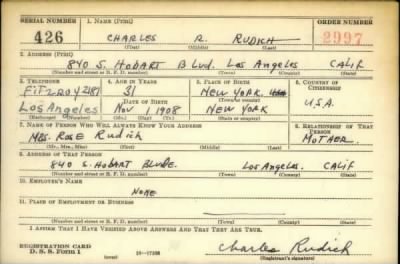 SERIAL NUMBER 1. NAME (Print) ORDER NUMBER
426 CHARLES R. RUDICH 2997
(First) (Middle) (Last)
2. ADDRESS (Print)
840 S. HOBART BLVD. LOS ANGELES CALIF
(Number and street or R. F. D. number) (Town) (County) (State)
3. TELEPHONE 4. AGE IN YEARS 5. PLACE OF BIRTH 6. COUNTRY OF CITIZENSHIP
FITZROY 2187 31 NEW YORK, U.S.A.
DATE OF BIRTH (Town or county)
LOS ANGELES NOV 1 1908 NEW YORK U.S.A.
(Exchange) (Number) (Mo.) (Day) (Yr.) (State or country)
7. NAME OF PERSON WHO WILL ALWAYS KNOW YOUR ADDRESS 8. RELATIONSHIP OF THAT PERSON
MRS. ROSE RUDICH MOTHER
(Mr., Mrs., Miss) (First) (Middle) (Last)
9. ADDRESS OF THAT PERSON
840 S. HOBART BLVDE. LOS ANGELES. CALIF
(Number and street or R. F. D. number) (Town) (County) (State)
10. EMPLOYER'S NAME
NONE
11. PLACE OF EMPLOYMENT OR BUSINESS
(Number and street or R. F. D. number) (Town) (County) (State)
I AFFIRM THAT I HAVE VERIFIED ABOVE ANSWERS AND THAT THEY ARE TRUE.
REGISTRATION CARD
D. S. S. Form 1 16—17105 Charles Rudich
(Registrant's signature)